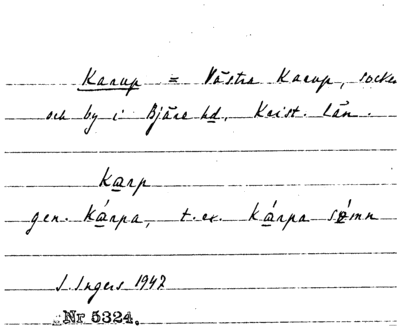 Karup = Västra Karup, socken
och by i Bjäre hd, Krist. län.
karp
gen. kárpa, t. ex. kárpa sómn
I. Ingers 1942
Nr 5324.